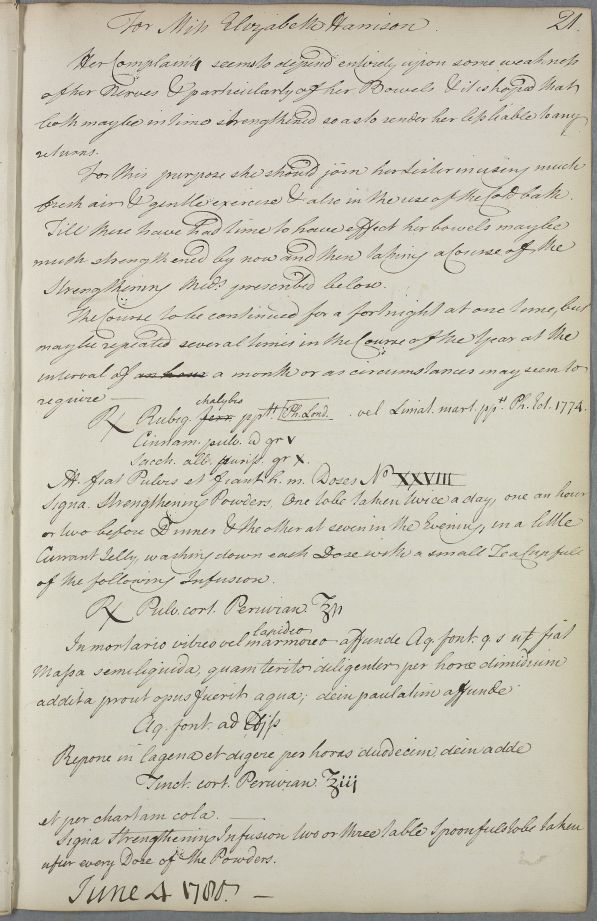 For Miss Elizabeth Harrison. 21.
Her Complaints seems to depend entirely upon some weakness
of her Nerves & particularly of her Bowels & it is hoped that
both may be in time strengthened so as to render her less liable to any
returns.
For this purpose she should join her Sister in using much
fresh air & gentle exercise & also in the use of the Cold bath.
Till these have had time to have effect her bowels may be
much strengthened by now and then taking a Course of the
Strengthening Meds. prescribed below.
The Course to be continued for a fortnight at one time, but
may be repeated several times in the Course of the Year at the
interval of an hour a month or as circumstances may seem to
require —
chalybis
℞ Rubig. ferr ppti Ph. Lond. vel Limat. mart. ppt. Ph. Ed. 1774.
Cinnam. pulv. a gr v
Sacch. alb. puriss. gr x.
M. fiat Pulvis et fiant h. m. Doses No XXVIII
Signa. Strengthening Powders. One to be taken twice a day, one an hour
or two before Dinner & the other at seven in the Evening, in a little
Currant Jelly, washing down each Dose with a small Tea Cup full
of the following Infusion.
℞ Pulv. cort. Peruvian. ℥ij
lapideo
In mortario vitreo vel marmoreo affunde Aq. font. q s ut fiat
Massa semiliquida, quam terito diligenter per horæ dimidium
addita prout opus fuerit aqua; dein paulatim affunde
Aq. font. ad ℔jſs
Repone in lagena et digere per horas duodecim, dein adde
Tinct. cort. Peruvian. ℥iij
et per chartam cola.
Signa Strengthening Infusion two or three table Spoonfuls to be taken
after every Dose of the Powders.
June 4 1780. —